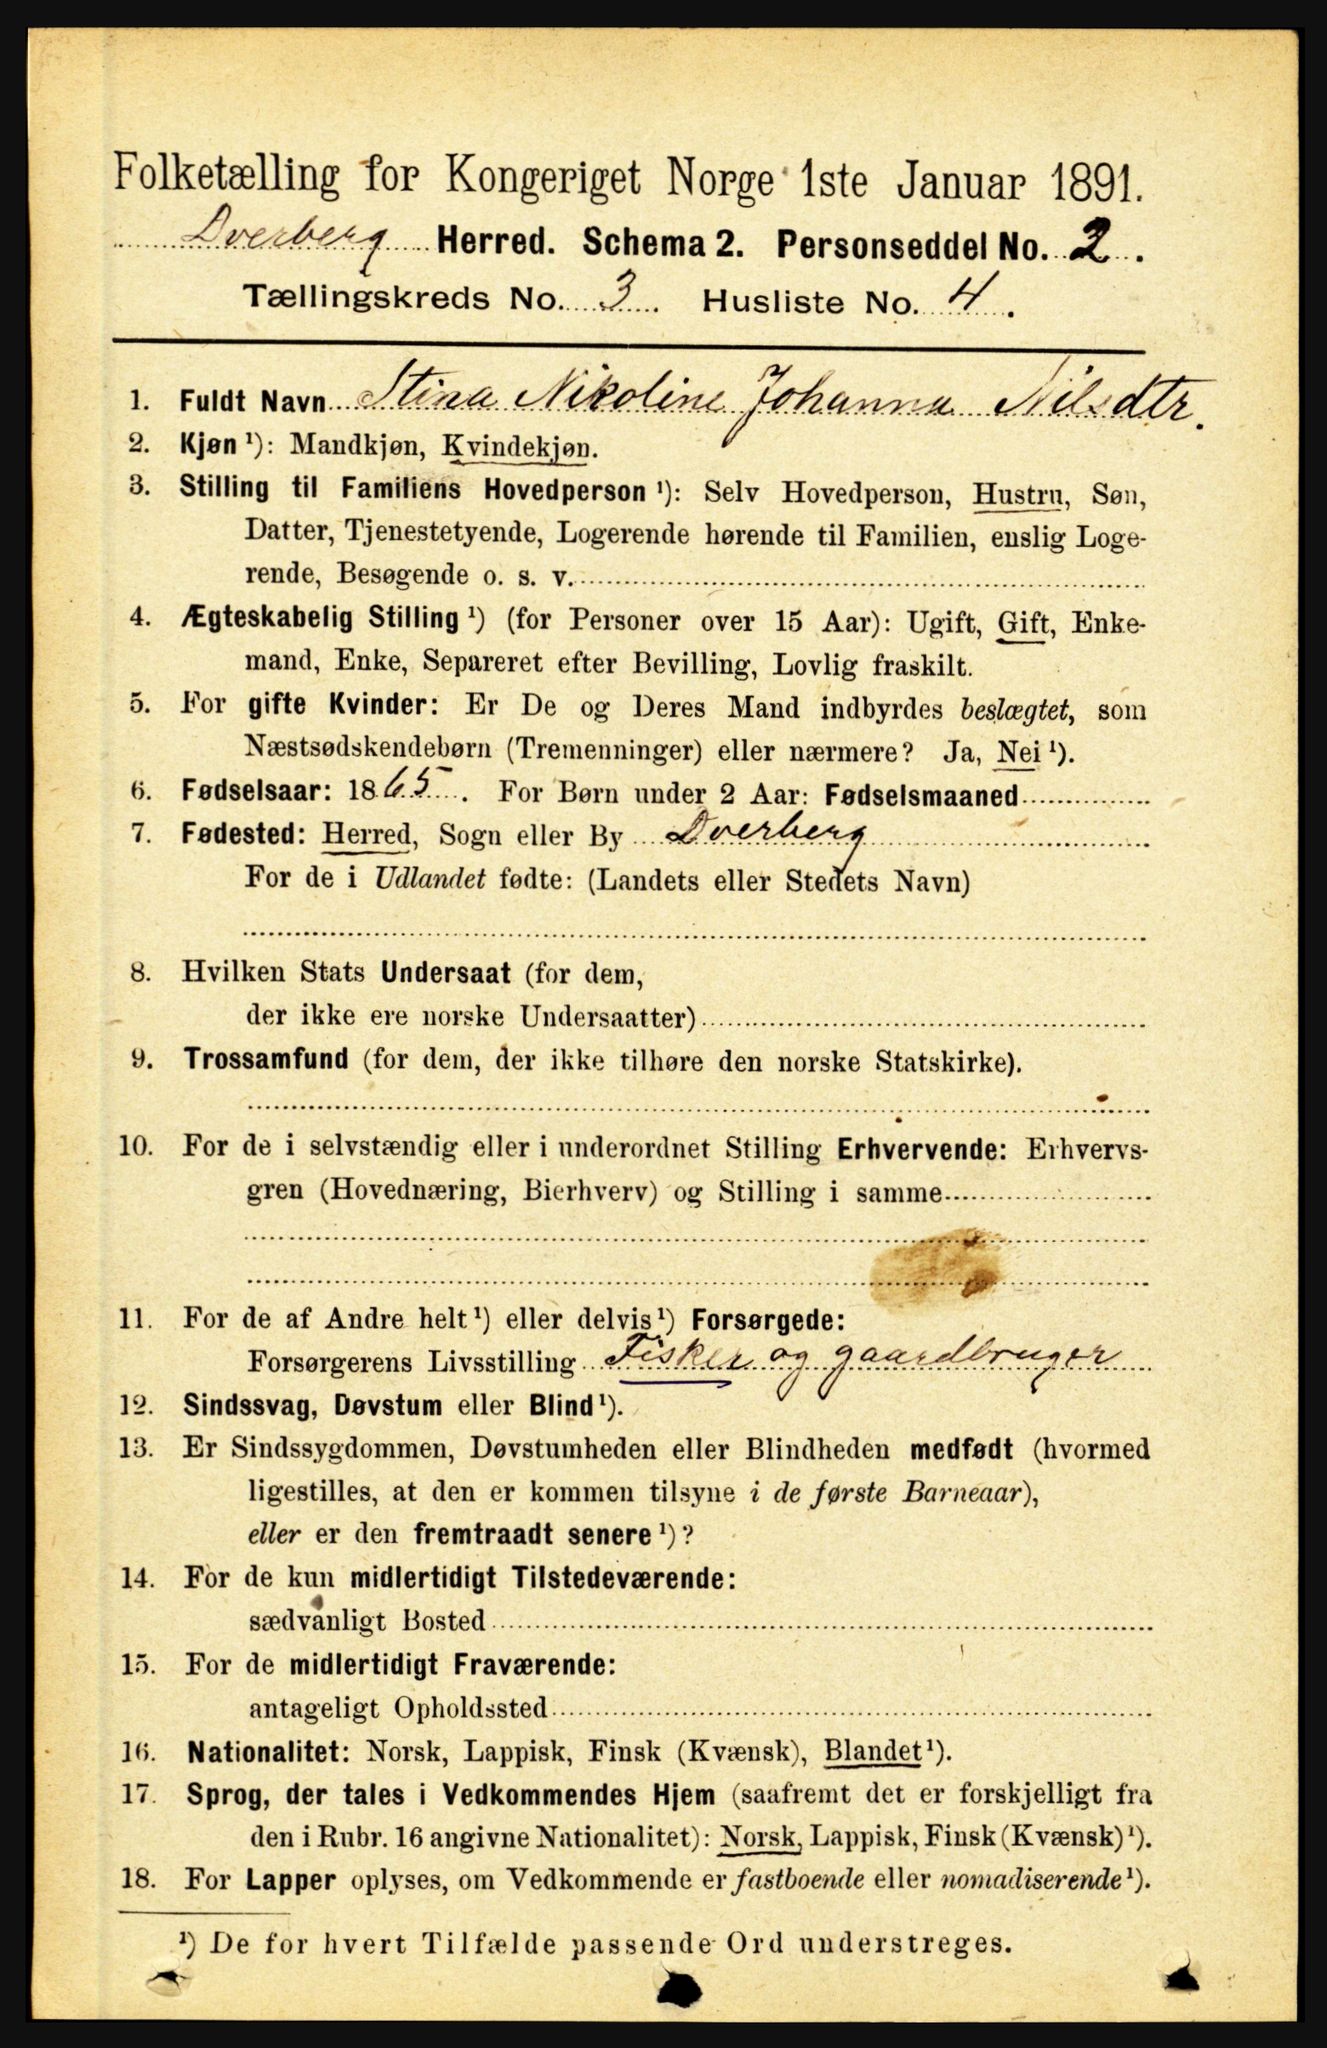 Folketælling for Kongeriget Norge 1ste Januar 1891.
Dverberg Herred. Schema 2. Personseddel No. 2.
Tællingskreds No. 3. Husliste No. 4.
1. Fuldt Navn Stina Nikoline Johanna Nilsdtr.
2. Kjøn ¹): Mandkjøn, Kvindekjøn.
3. Stilling til Familiens Hovedperson ¹): Selv Hovedperson, Hustru, Søn,
Datter, Tjenestetyende, Logerende hørende til Familien, enslig Loge-
rende, Besøgende o. s. v.
4. Ægteskabelig Stilling ¹) (for Personer over 15 Aar): Ugift, Gift, Enke-
mand, Enke, Separeret efter Bevilling, Lovlig fraskilt.
5. For gifte Kvinder: Er De og Deres Mand indbyrdes beslægtet, som
Næstsødskendebørn (Tremenninger) eller nærmere? Ja, Nei ¹).
6. Fødselsaar: 1865. For Børn under 2 Aar: Fødselsmaaned
7. Fødested: Herred, Sogn eller By Dverberg
For de i Udlandet fødte: (Landets eller Stedets Navn)
8. Hvilken Stats Undersaat (for dem,
der ikke ere norske Undersaatter)
9. Trossamfund (for dem, der ikke tilhøre den norske Statskirke).
10. For de i selvstændig eller i underordnet Stilling Erhvervende: Erhvervs-
gren (Hovednæring, Bierhverv) og Stilling i samme
11. For de af Andre helt ¹) eller delvis ¹) Forsørgede:
Forsørgerens Livsstilling Fisker og gaardbruger
12. Sindssvag, Døvstum eller Blind ¹).
13. Er Sindssygdommen, Døvstumheden eller Blindheden medfødt (hvormed
ligestilles, at den er kommen tilsyne i de første Barneaar),
eller er den fremtraadt senere ¹)?
14. For de kun midlertidigt Tilstedeværende:
sædvanligt Bosted
15. For de midlertidigt Fraværende:
antageligt Opholdssted
16. Nationalitet: Norsk, Lappisk, Finsk (Kvænsk), Blandet ¹).
17. Sprog, der tales i Vedkommendes Hjem (saafremt det er forskjelligt fra
den i Rubr. 16 angivne Nationalitet): Norsk, Lappisk, Finsk (Kvænsk) ¹).
18. For Lapper oplyses, om Vedkommende er fastboende eller nomadiserende ¹).
¹) De for hvert Tilfælde passende Ord understreges.